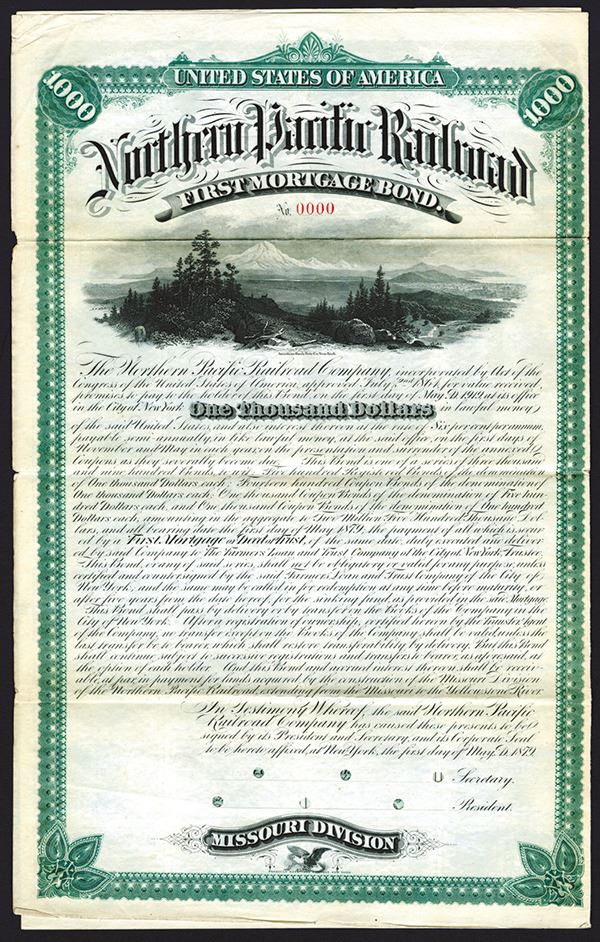 UNITED STATES OF AMERICA
1000
1000
Northern Pacific Railroad
FIRST MORTGAGE BOND.
No. 0000
American Bank Note Co. New York.
The Northern Pacific Railroad Company, incorporated by Act of the
Congress of the United States of America, approved July 2nd 1864, for value received,
promises to pay to the holder of this Bond, on the first day of May A.D. 1919, at its office
in the City of New York One Thousand Dollars in lawful money
of the said United States, and also interest thereon at the rate of Six per cent per annum,
payable semi-annually, in like lawful money, at the said office, on the first days of
November and May in each year, on the presentation and surrender of the annexed
Coupons as they severally become due. This Bond is one of a series of three thousand
and nine hundred Bonds, to wit: Five Hundred Registered Bonds of the denomination
of One thousand Dollars each; Fourteen hundred Coupon Bonds of the denomination of
One thousand Dollars each; One thousand Coupon Bonds of the denomination of Five hun-
dred Dollars each, and One thousand Coupon Bonds of the denomination of One hundred
Dollars each, amounting in the aggregate to Two Million Five Hundred Thousand Dol-
lars, and all bearing date the first day of May, 1879, the payment of all which is secur-
ed by a First Mortgage or Deed of Trust, of the same date, duly executed and deliver-
ed by said Company to The Farmers Loan and Trust Company of the City of New York, Trustee.
This Bond, or any of said series, shall not be obligatory or valid for any purpose, unless
certified and countersigned by the said Farmers Loan and Trust Company of the City of
New York, and the same may be called in for redemption at any time before maturity, or
after five years from the date hereof, for the sinking fund, as provided in the said Mortgage.
This Bond shall pass by delivery or by transfer on the Books of the Company in the
City of New York. After a registration of ownership, certified hereon by the Transfer Agent
of the Company, no transfer except on the Books of the Company shall be valid, unless the
last transfer be to bearer, which shall restore transferability by delivery. But this Bond
shall continue subject to successive registrations and transfers to bearer, as aforesaid, at
the option of each holder. And this Bond and accrued interest thereon, shall be receiv-
able, at par, in payment for lands acquired by the construction of the Missouri Division
of the Northern Pacific Railroad, extending from the Missouri to the Yellowstone River.
In Testimony Whereof, the said Northern Pacific
Railroad Company has caused these presents to be
signed by its President and Secretary, and its Corporate Seal
to be hereto affixed, at New York, the first day of May, A.D. 1879.
Secretary.
President.
MISSOURI DIVISION